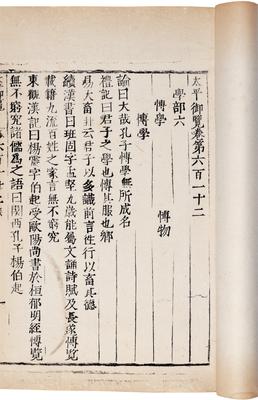 太平御覽卷第六百一十二
學部六
博學　博物
博學
論曰大哉孔子博學無所成名
禮記曰君子之學也博其服也鄉
易大畜卦云君子以多識前言往行以畜其德
續漢書曰班固字孟堅九歲能屬文誦詩賦及長遂博覽
載籍九流百姓之家言無不窮究
東觀漢記曰楊震字伯起受歐陽尚書於桓郁明經博覽
無不窮究諸儒為之語曰關西孔子楊伯起